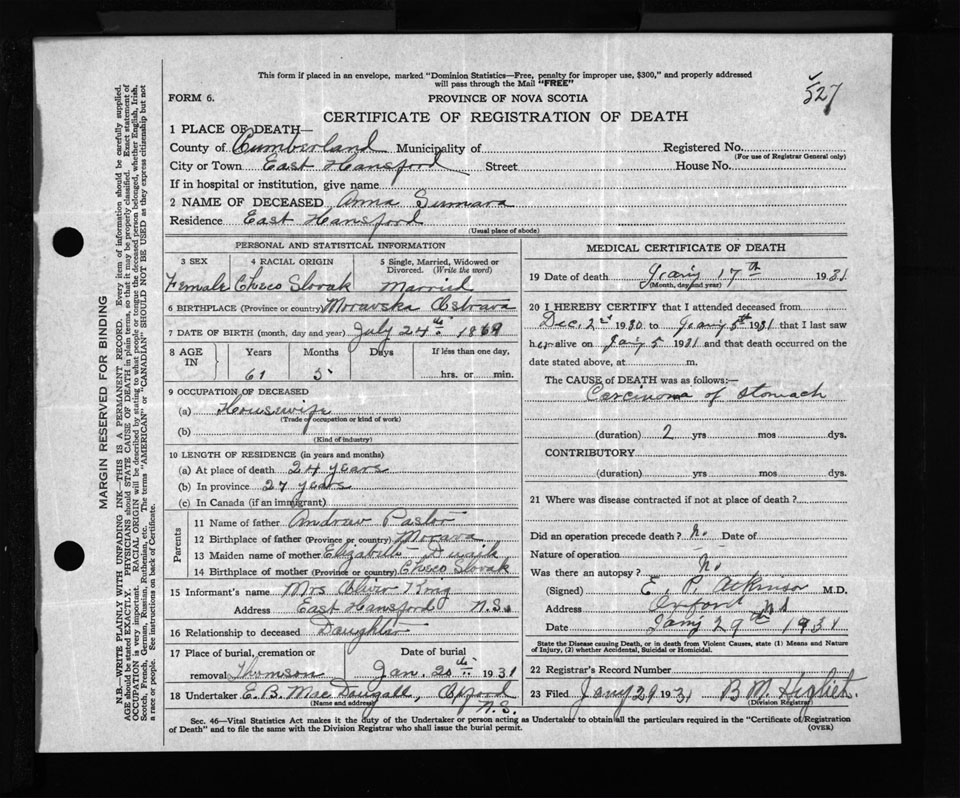 This form if placed in an envelope, marked "Dominion Statistics—Free, penalty for improper use, $300," and properly addressed
will pass through the Mail "FREE"
527
FORM 6.
PROVINCE OF NOVA SCOTIA
CERTIFICATE OF REGISTRATION OF DEATH
1 PLACE OF DEATH—
County of Cumberland Municipality of Registered No.
(For use of Registrar General only)
City or Town East Hansford Street House No.
If in hospital or institution, give name
2 NAME OF DECEASED Anna Sumara
Residence East Hansford
(Usual place of abode)
PERSONAL AND STATISTICAL INFORMATION
3 SEX 4 RACIAL ORIGIN 5 Single, Married, Widowed or Divorced. (Write the word)
Female Checo Slovak Married
6 BIRTHPLACE (Province or country) Moravska Ostrava
7 DATE OF BIRTH (month, day and year) July 24th 1869
8 AGE IN Years Months Days If less than one day,
61 5 hrs. or min.
9 OCCUPATION OF DECEASED
(a) Housewife
(Trade or occupation or kind of work)
(b)
(Kind of industry)
10 LENGTH OF RESIDENCE (in years and months)
(a) At place of death 24 years
(b) In province 27 years
(c) In Canada (if an immigrant)
Parents
11 Name of father Andrew Pastor
12 Birthplace of father (Province or country) Morava
13 Maiden name of mother Elizabeth
14 Birthplace of mother (Province or country) Checo Slovak
15 Informant's name Mrs Oliver King
Address East Hansford N.S.
16 Relationship to deceased Daughter
17 Place of burial, cremation or removal Thomson
Date of burial Jan. 20th 1931
18 Undertaker E. B. MacDougall, Oxford N.S.
(Name and address)
MEDICAL CERTIFICATE OF DEATH
19 Date of death Jany 17th 1931
(Month, day and year)
20 I HEREBY CERTIFY that I attended deceased from
Dec. 2nd 1930 to Jany 5th 1931 that I last saw
her alive on Jany 5 1931 and that death occurred on the
date stated above, at m.
The CAUSE of DEATH was as follows:—
Carcinoma of stomach
(duration) 2 yrs mos dys.
CONTRIBUTORY
(duration) yrs mos dys.
21 Where was disease contracted if not at place of death?
Did an operation precede death? No. Date of
Nature of operation
Was there an autopsy? No
(Signed) E. P. Atkinson M.D.
Address Oxford N.S
Date Jany 29th 1931
State the Disease causing Death, or in death from Violent Causes, state (1) Means and Nature
of Injury, (2) whether Accidental, Suicidal or Homicidal.
22 Registrar's Record Number
23 Filed Jany 29 1931 B M
(Division Registrar)
Sec. 46—Vital Statistics Act makes it the duty of the Undertaker or person acting as Undertaker to obtain all the particulars required in the "Certificate of Registration
of Death" and to file the same with the Division Registrar who shall issue the burial permit.
(OVER)
MARGIN RESERVED FOR BINDING
N.B.—WRITE PLAINLY WITH UNFADING INK—THIS IS A PERMANENT RECORD. Every item of information should be carefully supplied.
AGE should be stated EXACTLY. PHYSICIANS should STATE CAUSE OF DEATH in plain terms, so that it may be properly classified. Exact statement of
OCCUPATION is very important. RACIAL ORIGIN will be described by stating to what people or tongue the deceased person belonged, whether English, Irish,
Scotch, French, German, Russian, Ruthenian, etc. The terms "AMERICAN" or "CANADIAN" SHOULD NOT BE USED as they express citizenship but not
a race or people. See instructions on back of Certificate.